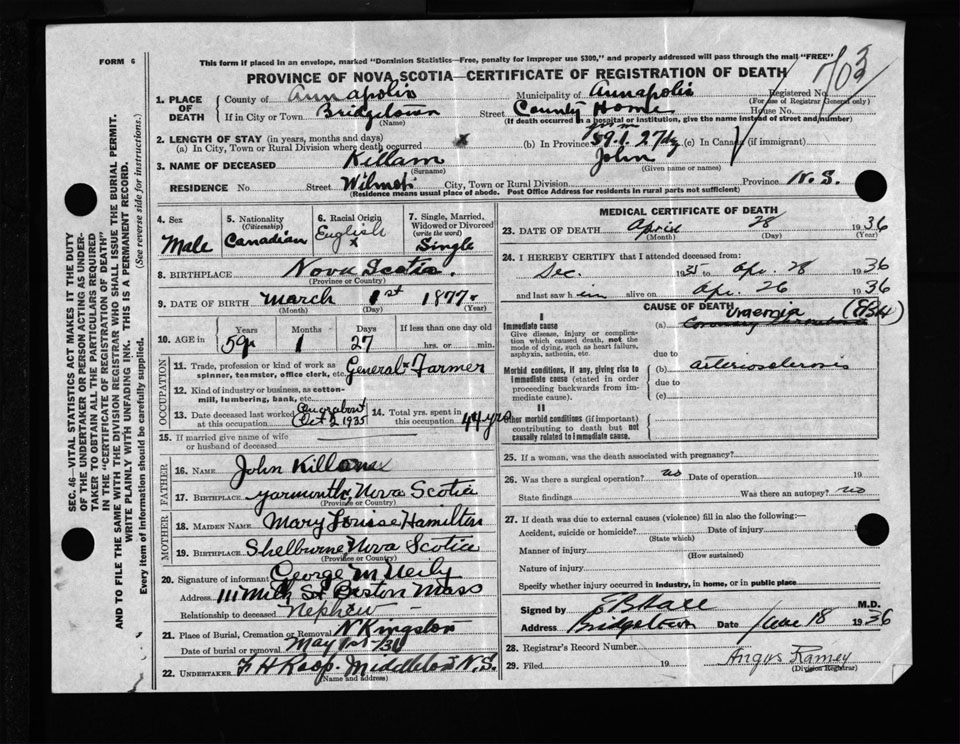 FORM 6
This form if placed in an envelope, marked "Dominion Statistics—Free, penalty for improper use $300," and properly addressed will pass through the mail "FREE"
PROVINCE OF NOVA SCOTIA—CERTIFICATE OF REGISTRATION OF DEATH
703
SEC. 46—VITAL STATISTICS ACT MAKES IT THE DUTY
OF THE UNDERTAKER OR PERSON ACTING AS UNDER-
TAKER TO OBTAIN ALL THE PARTICULARS REQUIRED
IN THE "CERTIFICATE OF REGISTRATION OF DEATH"
AND TO FILE THE SAME WITH THE DIVISION REGISTRAR WHO SHALL ISSUE THE BURIAL PERMIT.
WRITE PLAINLY WITH UNFADING INK. THIS IS A PERMANENT RECORD.
Every item of Information should be carefully supplied. (See reverse side for instructions.)
1. PLACE OF DEATH County of Annapolis Municipality of Annapolis Registered No.
(For use of Registrar General only)
If in City or Town Bridgetown (Name) Street County Home House No.
(If death occurred in a hospital or institution, give the name instead of street and number)
2. LENGTH OF STAY (in years, months and days)
(a) In City, Town or Rural Division where death occurred x (b) In Province 59. 1. 27 dy (c) In Canada (if immigrant)
3. NAME OF DECEASED Killam (Surname) John (Given name or names)
RESIDENCE No Street Wilmot City, Town or Rural Division Province N. S.
(Residence means usual place of abode. Post Office Address for residents in rural parts not sufficient)
4. Sex Male
5. Nationality (Citizenship) Canadian
6. Racial Origin English x
7. Single, Married, Widowed or Divorced (write the word) Single
8. BIRTHPLACE Nova Scotia.
(Province or Country)
9. DATE OF BIRTH March 1st 1877
(Month) (Day) (Year)
10. AGE in Years Months Days If less than one day old
59 1 27 hrs. or min.
OCCUPATION
11. Trade, profession or kind of work as spinner, teamster, office clerk, etc. General Farmer
12. Kind of industry or business, as cotton-mill, lumbering, bank, etc.
13. Date deceased last worked at this occupation about Oct 2 1935
14. Total yrs. spent in this occupation 44 yrs
15. If married give name of wife or husband of deceased
FATHER
16. NAME John Killam
17. BIRTHPLACE Yarmouth, Nova Scotia
(Province or Country)
MOTHER
18. MAIDEN NAME Mary Louise Hamilton
19. BIRTHPLACE Shelburne, Nova Scotia
(Province or Country)
20. Signature of informant George M Neily
Address 111 Milk St Boston Mass
Relationship to deceased Nephew
21. Place of Burial, Cremation or Removal N Kingston
Date of burial or removal May 1st /36
22. UNDERTAKER F H Roop. Middleton N.S.
(Name and address)
MEDICAL CERTIFICATE OF DEATH
23. DATE OF DEATH April 28 1936
(Month) (Day) (Year)
24. I HEREBY CERTIFY that I attended deceased from:
Dec. 1935 to Apr. 28 1936
and last saw him alive on Apr. 26 1936
CAUSE OF DEATH
I
Immediate cause
Give disease, injury or complication which caused death, not the mode of dying, such as heart failure, asphyxia, asthenia, etc.
(a) Uraemia
due to
Morbid conditions, if any, giving rise to immediate cause (stated in order proceeding backwards from immediate cause).
(b) arteriosclerosis
due to
(c)
II
Other morbid conditions (if important) contributing to death but not causally related to immediate cause.
25. If a woman, was the death associated with pregnancy?
26. Was there a surgical operation? no Date of operation 19
State findings Was there an autopsy? no
27. If death was due to external causes (violence) fill in also the following:—
Accident, suicide or homicide? Date of injury 19
(State which)
Manner of injury
(How sustained)
Nature of injury
Specify whether injury occurred in industry, in home, or in public place
Signed by M.D.
Address Bridgetown Date June 18 1936
28. Registrar's Record Number
29. Filed 19 Angus Ramey
(Division Registrar)